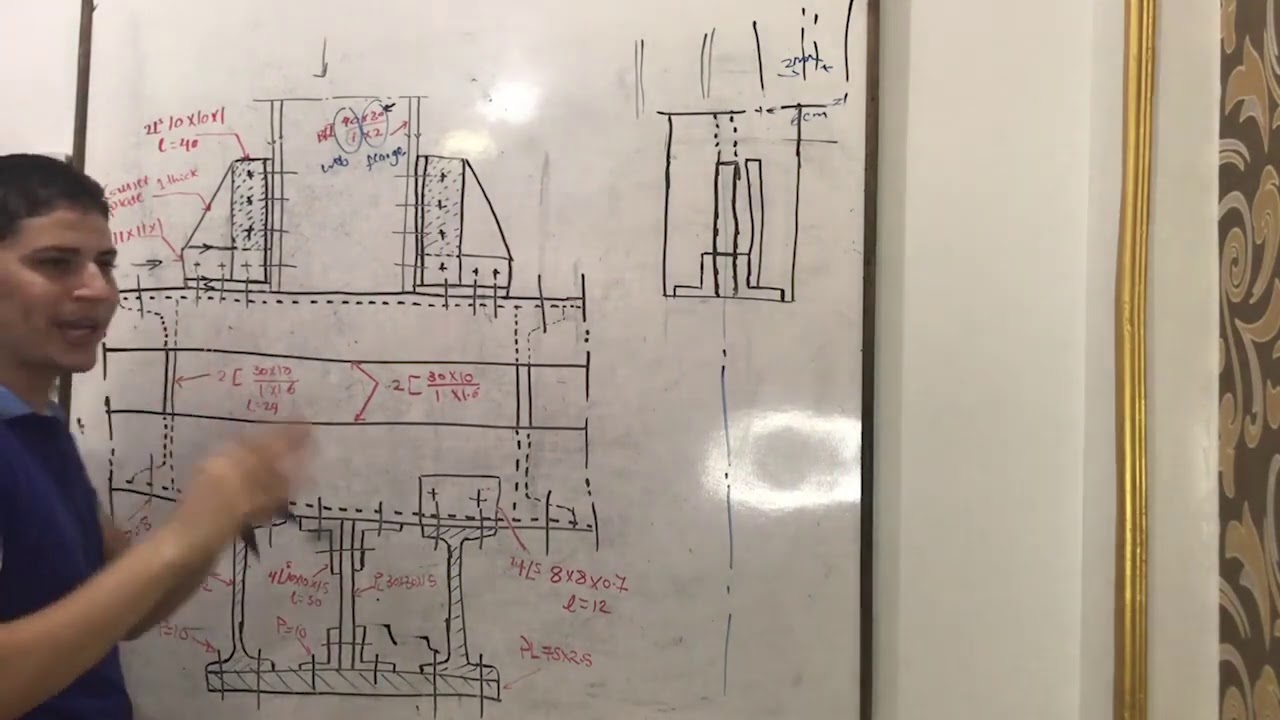 2Lˢ 10×10×1
l=40
Gusset 1 thick
plate
11×11×1
40×30
1×2
web flange
2mm
6cm
2 [ 30×10
1×1.6
l=29
2 [ 30×10
1×1.6
4Lˢ 10×10×1.5
l=30
PL 30×30×1.5
4Lˢ 8×8×0.7
l=12
P=10
P=10
PL 75×2.5